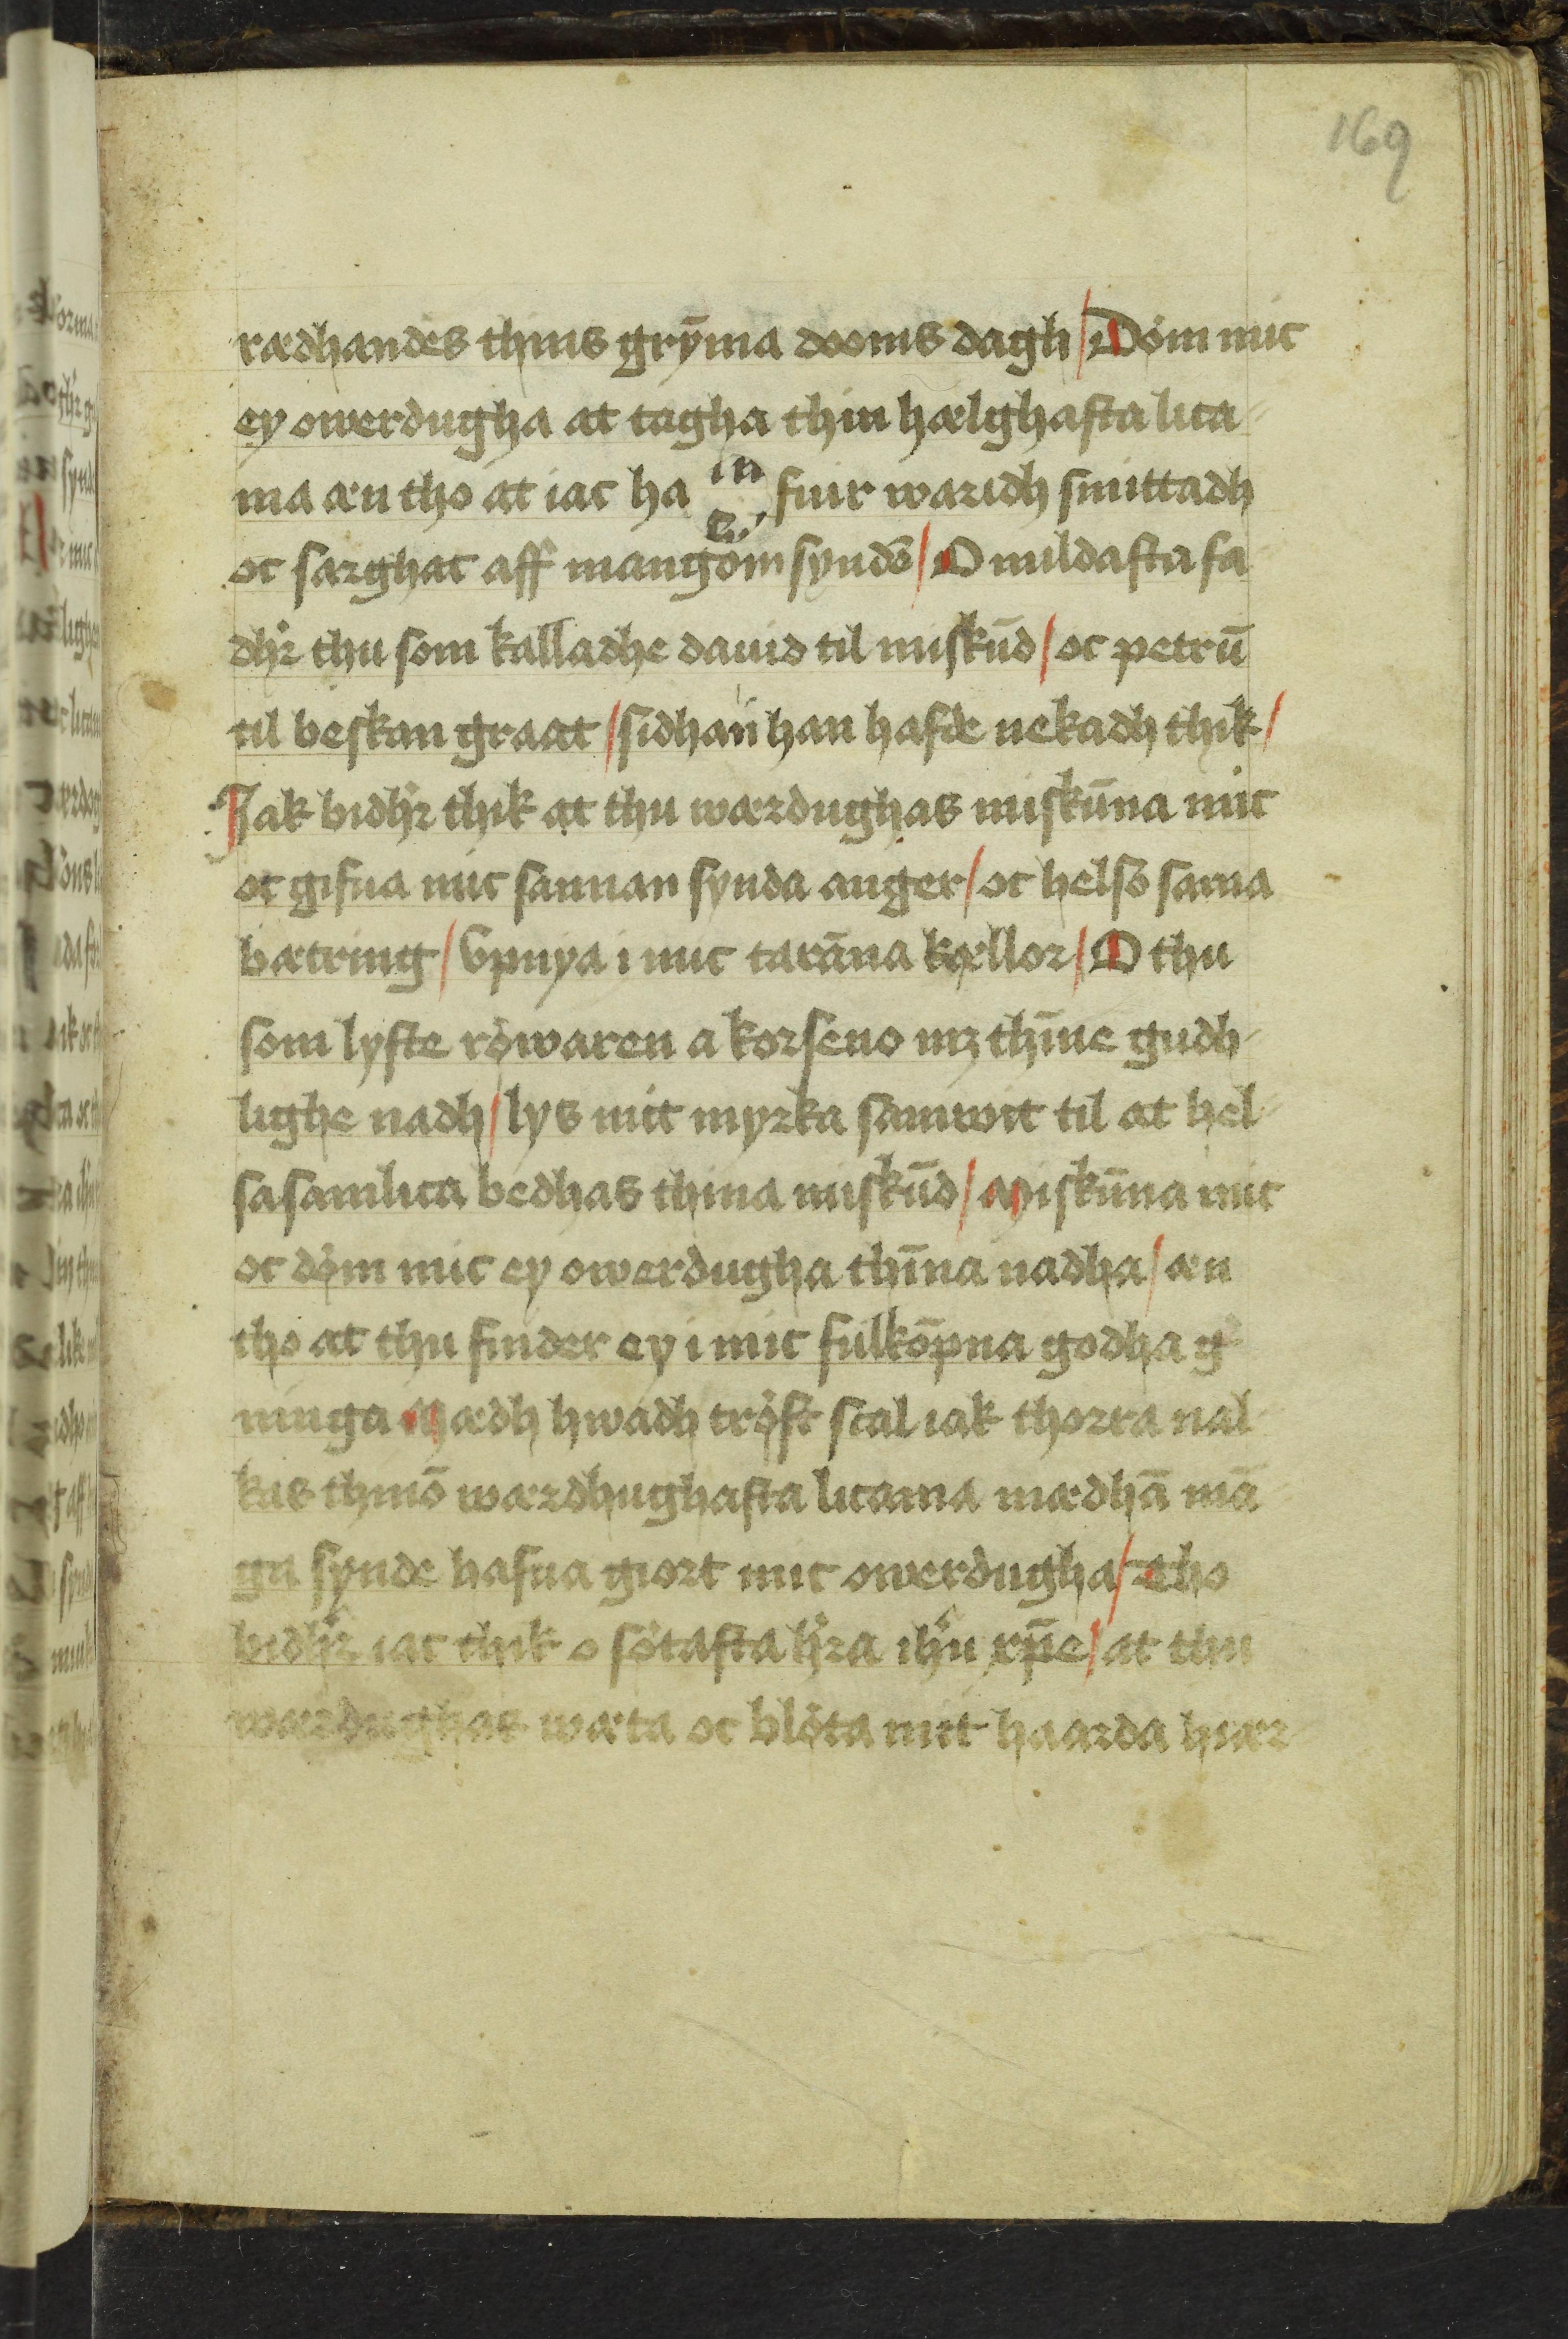 169
rædhandes thins grȳma dooms dagh / Döm mic
ey owerdugha at tagha thin hælghasta lica-
ma æn tho at iac ha fuir waridh smittadh
oc sarghat aff mangom syndō / O mildasta fa
dh̉r thu som kalladhe dauid til miskūd / oc petrū
til beskan graat / sidhan han hafde nekadh thik /
Jak bidh̉r thik at thu wærdughas miskūna mic
oc gifua mic sannan synda anger / oc helsō sama
bætring / Vpnya i mic tarāna kællor / O thu
som lyfte röwaren a korseno mʒ thīne gudh-
lighe nadh / lys mit myrka samwit til at hel-
sasamlica bedhas thina miskūd / Miskūna mic
oc döm mic ey owerdugha thīna nadha / æn
tho at thu finder ey i mic fulkōpna godha g̉
ninga Mædh hwadh tröst scal iak thorra nal-
kas thinō wærdhughasta licama mædhā mā
ga synde hafua giort mic owerdugha / Tho
bidh̉r iac thik o sötasta h̉ra ih̄u xp̄e / at thu
wærdughas wæta oc blöta mit haarda hiær-